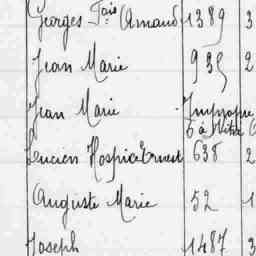 Georges Fçois Amand 1389 3
Jean Marie 935 2
Jean Marie Impropre
Lucien Hospice Ernest 638 2
Auguste Marie 52 1
Joseph 1487 3